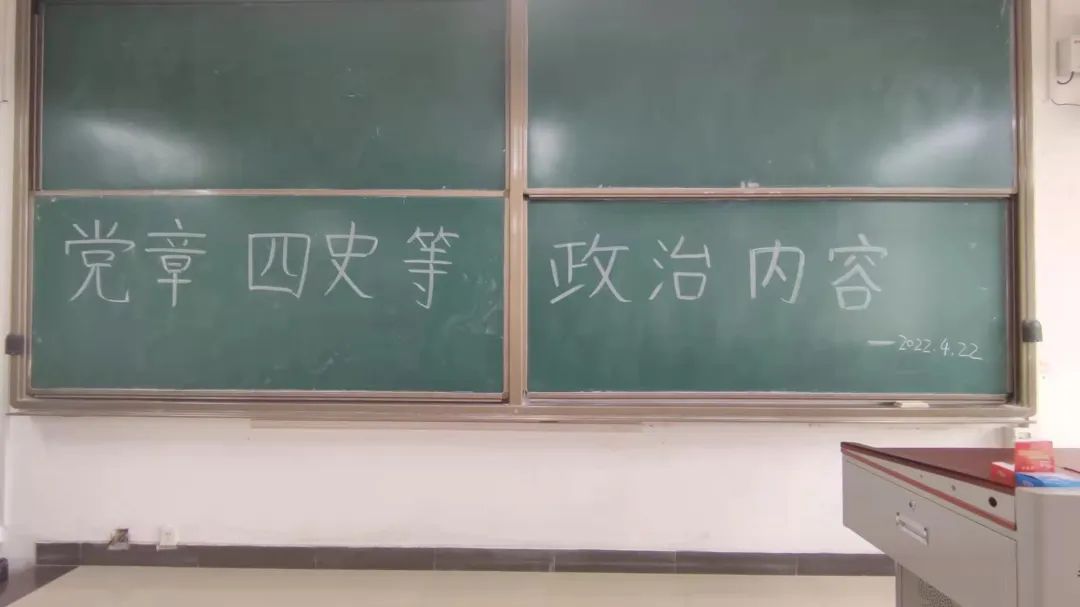 党章 四史等 政治内容
—2022.4.22